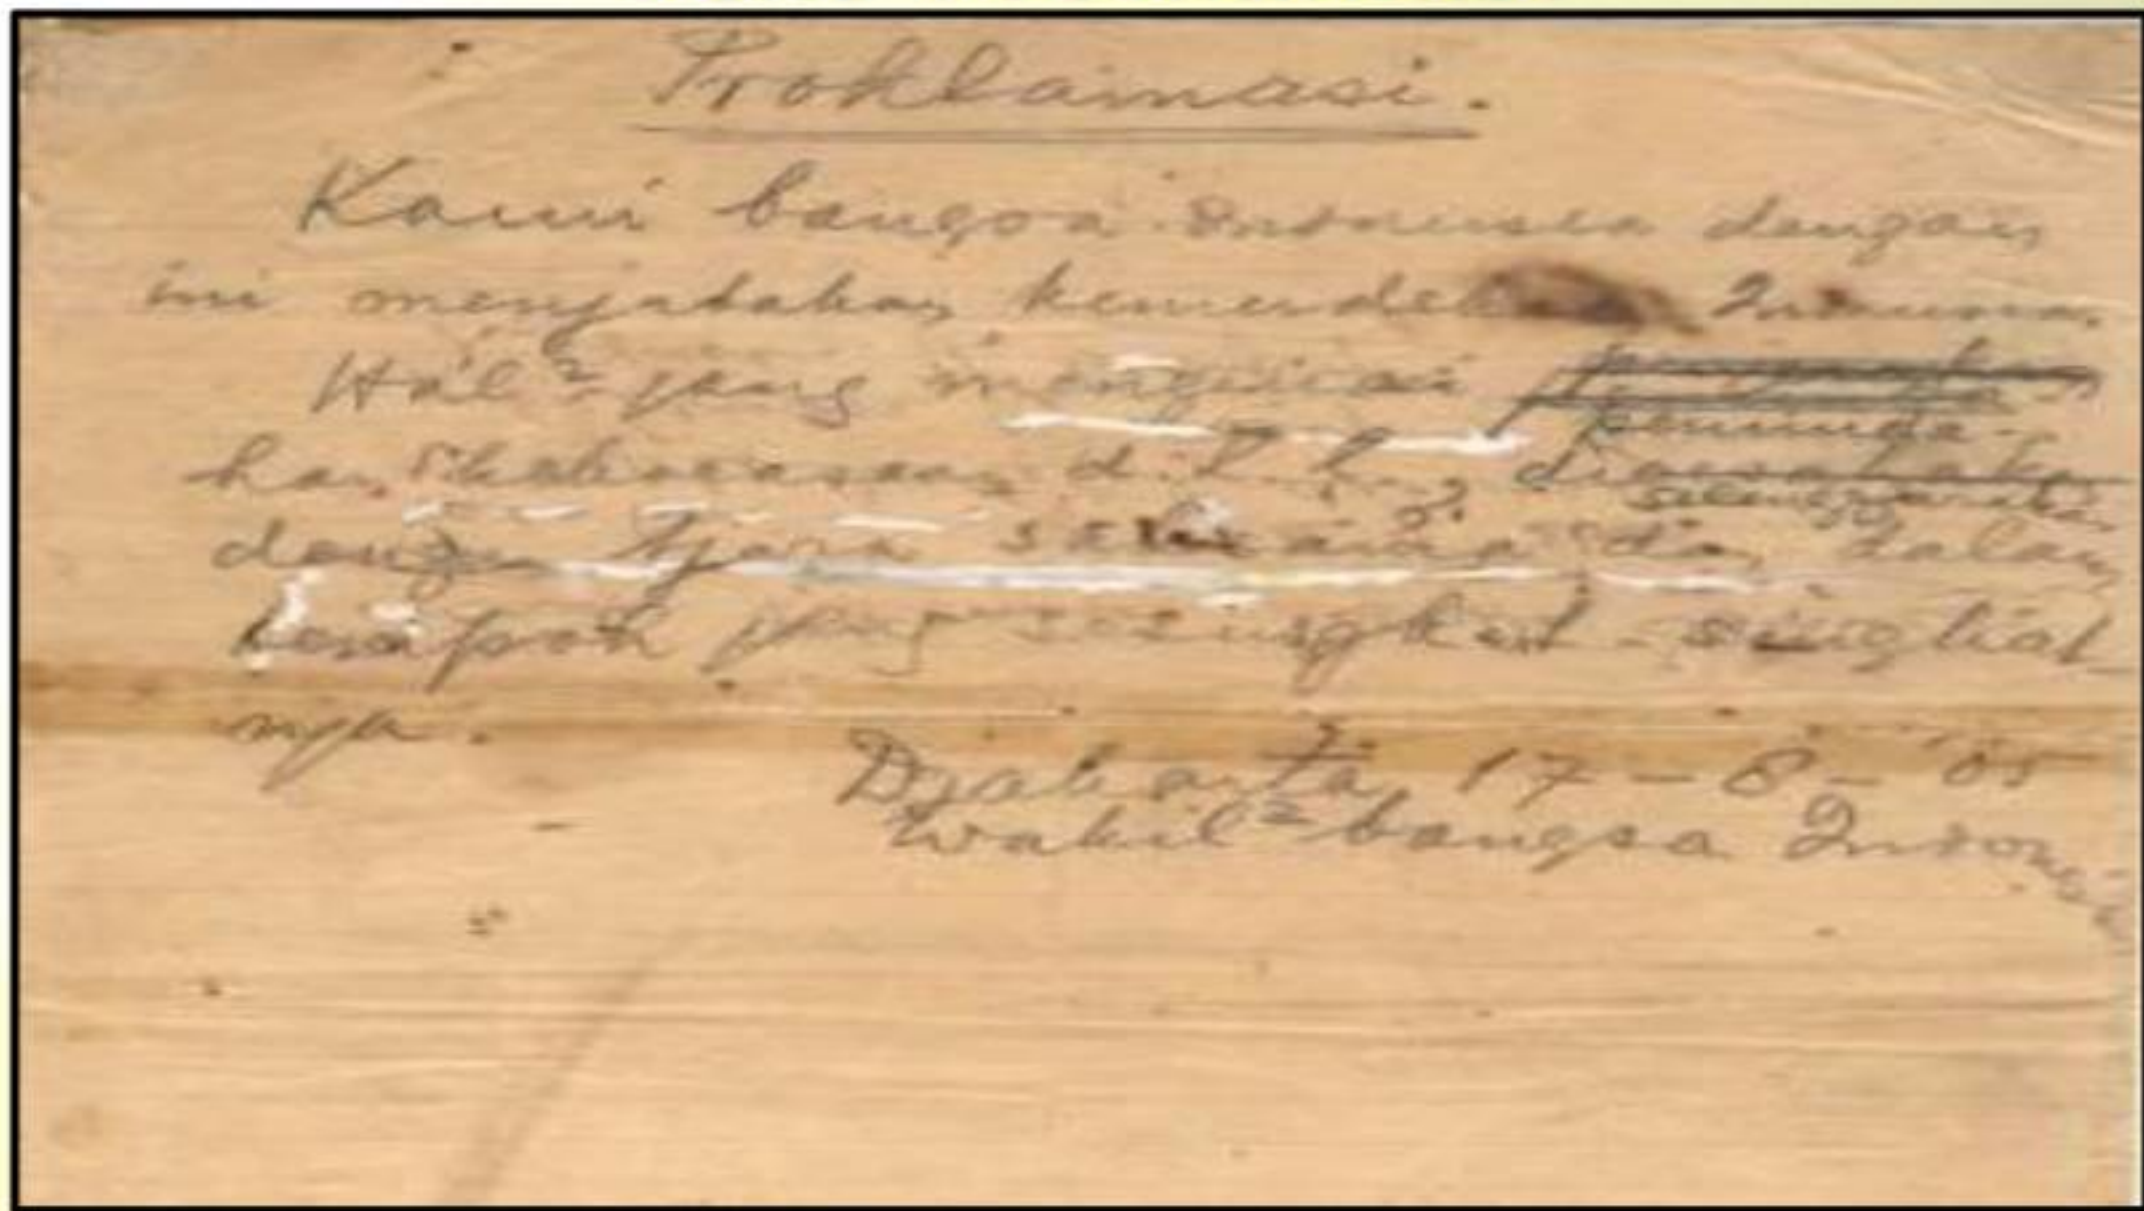 Proklamasi.
Kami bangsa Indonesia dengan
ini menjatakan kemerdekaan Indonesia.
Hal² jang mengenai
pemindahan
kekoeasaan d.l.l., diselenggarakan
dengan tjara saksama dan dalam
tempoh jang sesingkat-singkat
nja.
Djakarta 17-8-'05
Wakil² bangsa Indonesia